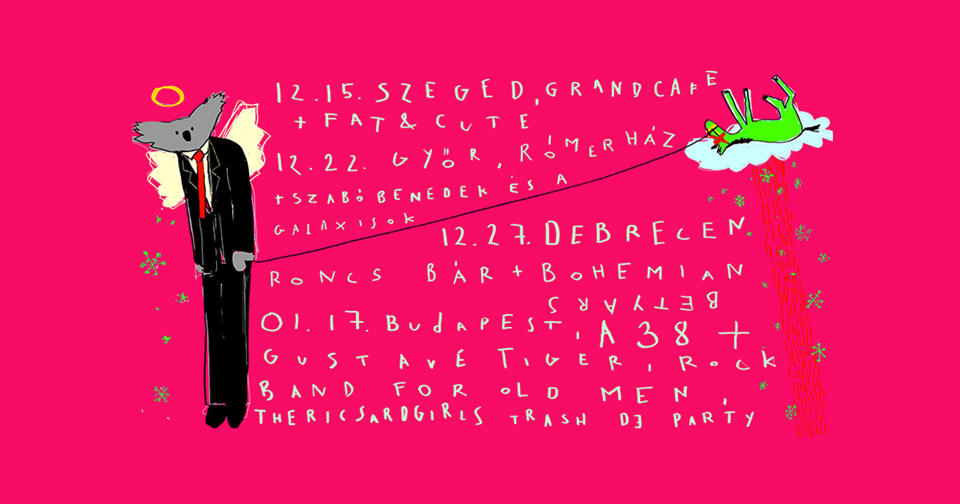 12.15. SZEGED, GRANDCAFE
+ FAT & CUTE
12.22. GYŐR, RÓMERHÁZ
+ SZABÓ BENEDEK ÉS A
GALAXISOK
12.27. DEBRECEN
RONCS BÁR + BOHEMIAN
BETYARS
01.17. BUDAPEST, A38 +
GUSTAVE TIGER, ROCK
BAND FOR OLD MEN,
THERICSARDGIRLS TRASH DJ PARTY